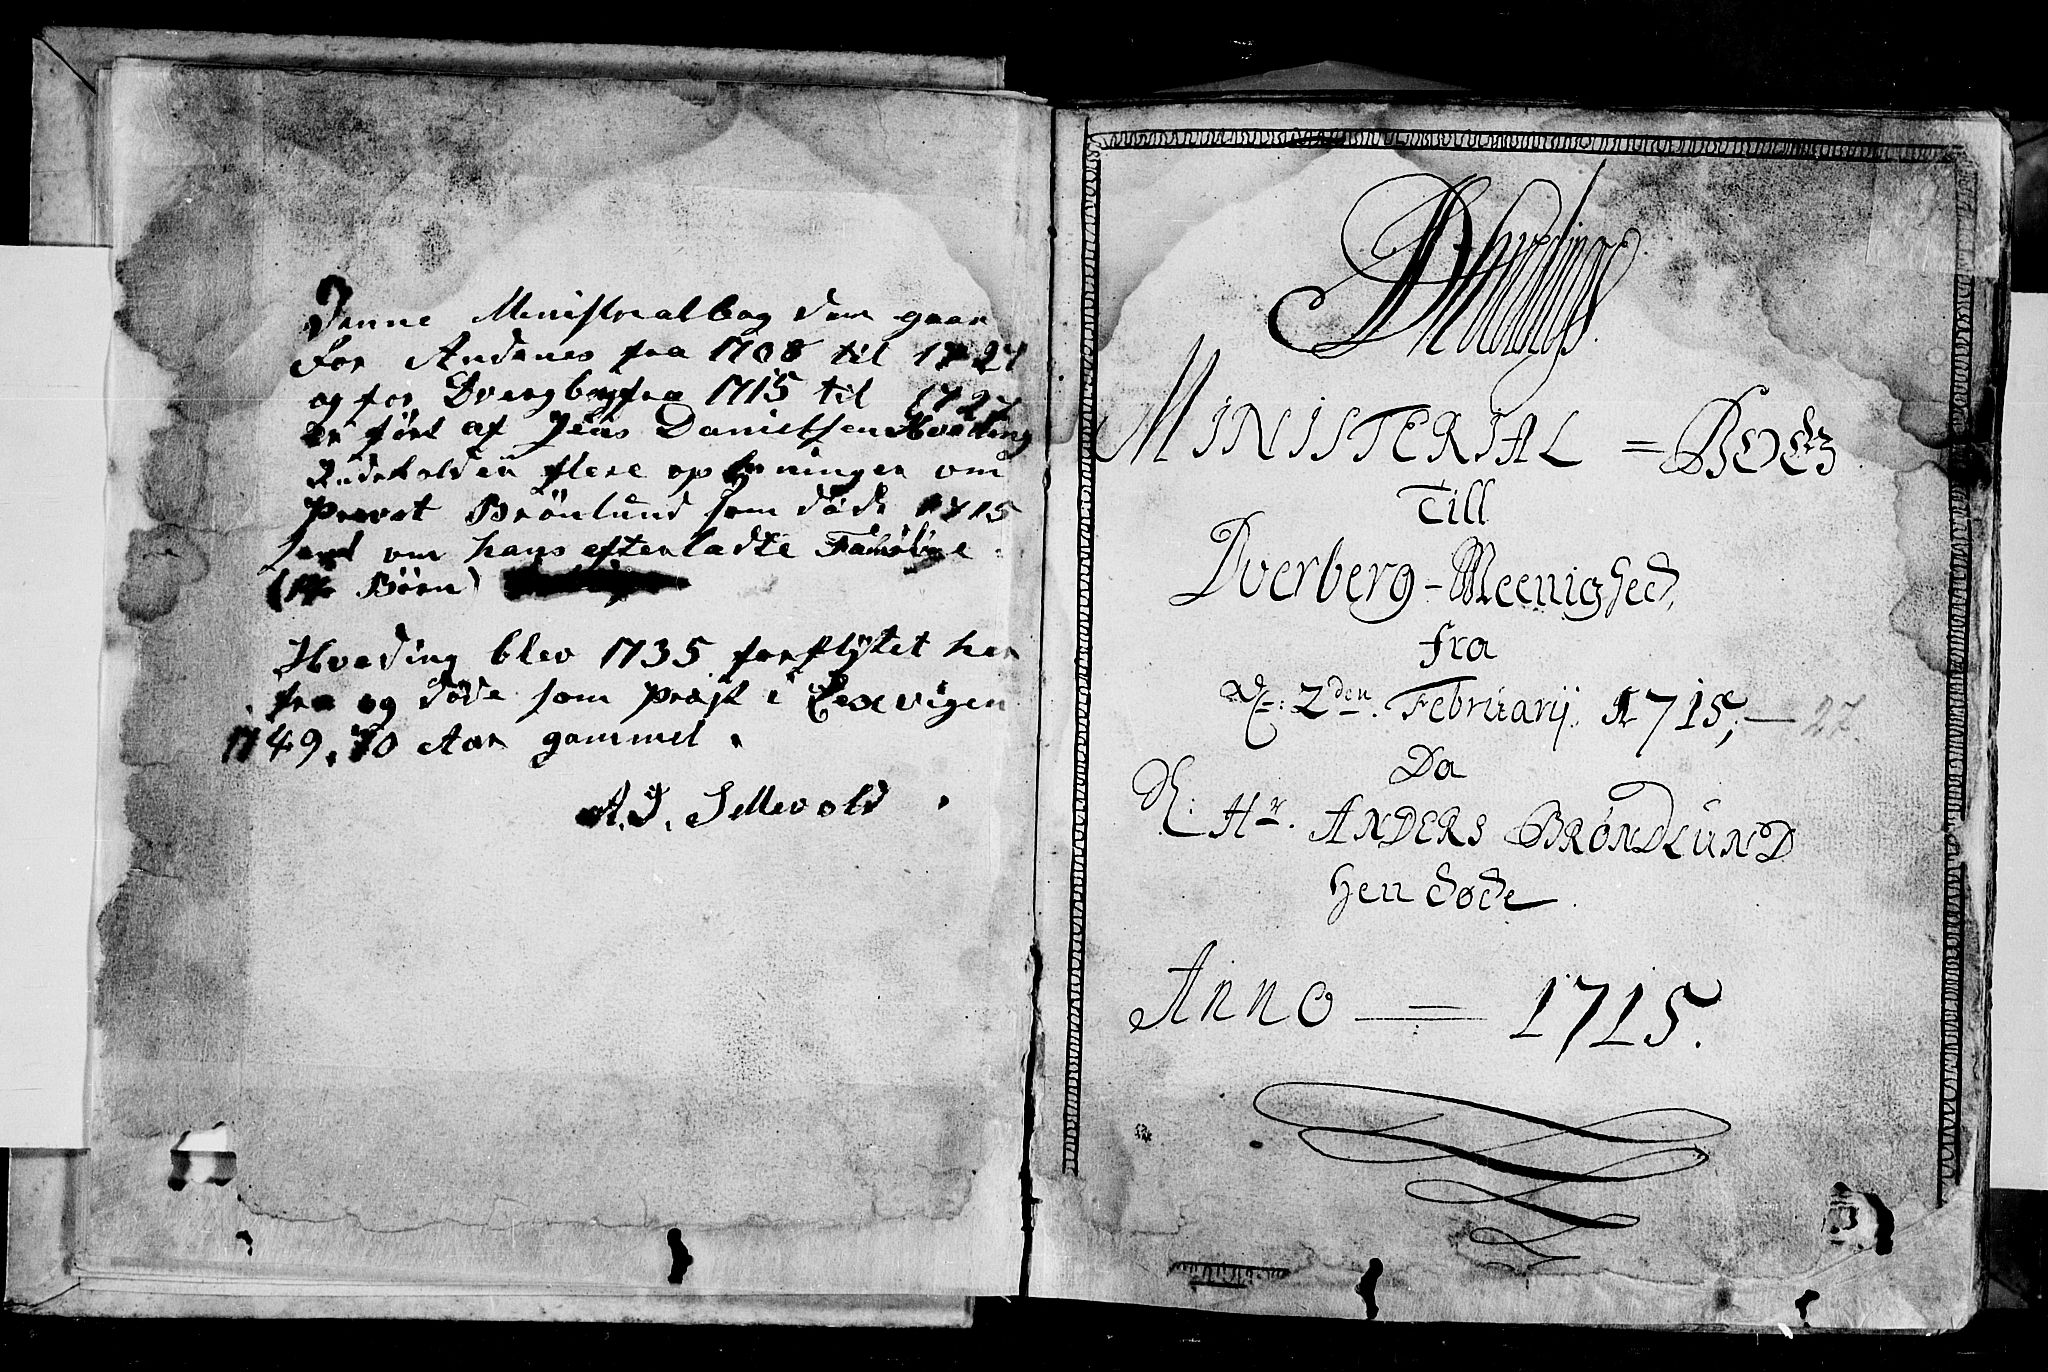 Denne Ministrealbog som gaar
For Andenes fra 1708 til 1727
og for Dvergberg fra 1715 til 1727
erført af Jens Danielsen Hveding
Indeholder flere oplysninger om
Provst Brönlund som døde 1715
samt om hans efterladte Familie.
Börn)
Hveding blev 1735 forflyttet her
fra og døde som Præst i Lexvigen
1749. 70 Aar gammel.
A. J. Sellevold
Hvedings
MINISTERIAL = BOEG
Till
Dverberg - Meenighed,
fra
D: 2den Februarij. 1715, — 27.
Da
Hr. ANDERS BRØNDLUND
hen døde.
Anno = 1715.